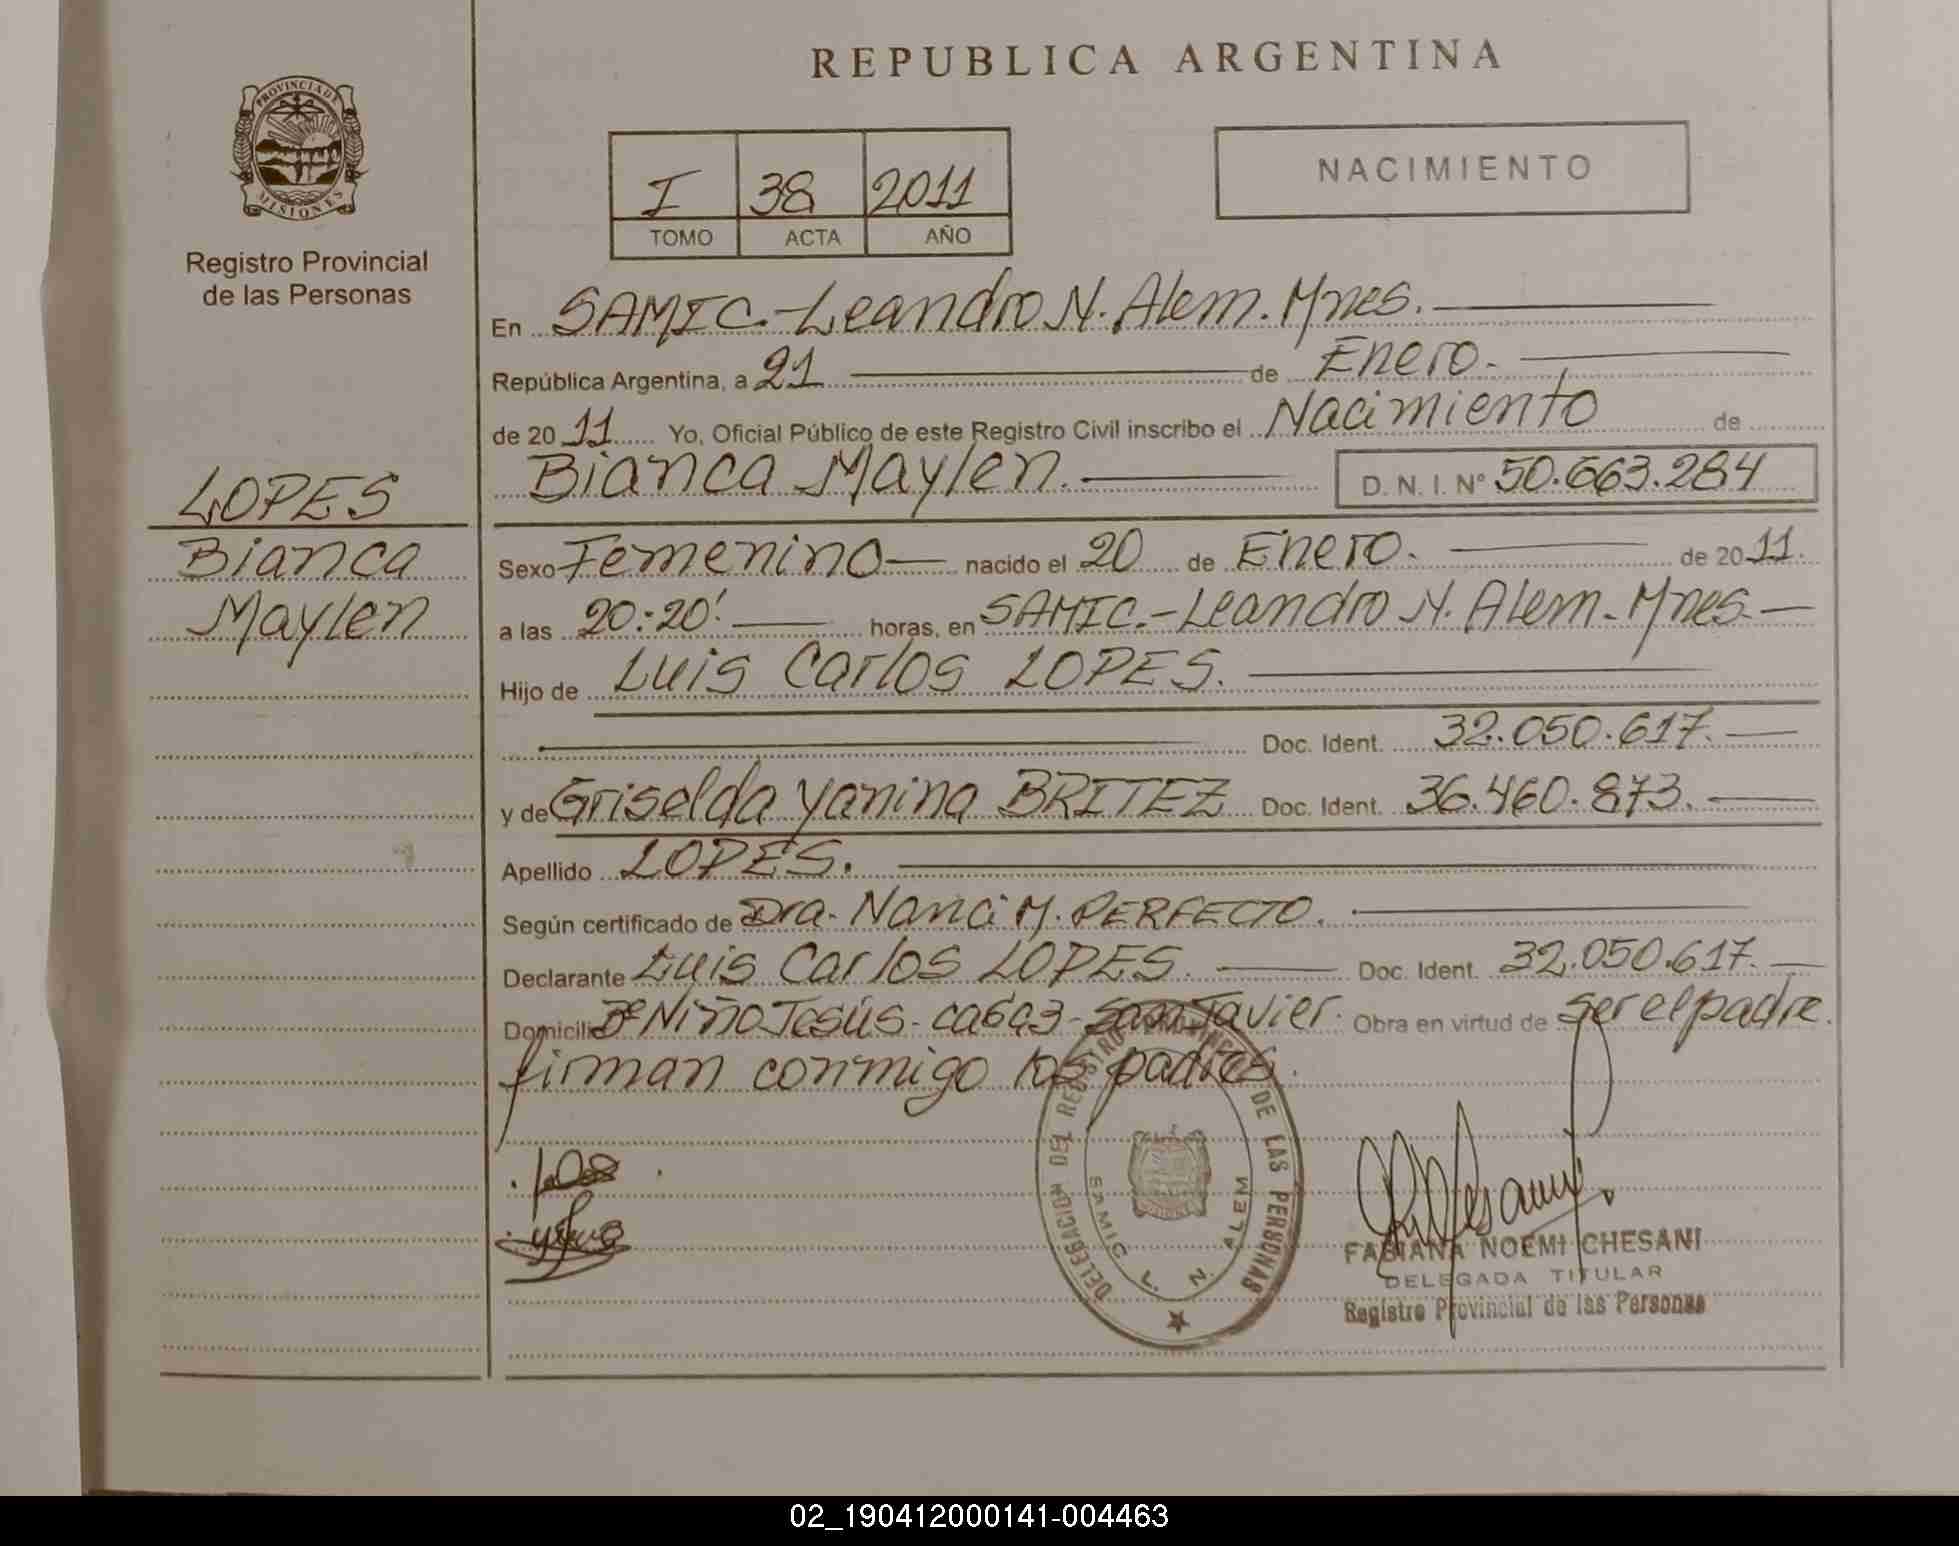 REPUBLICA ARGENTINA
PROVINCIA DE
MISIONES
Registro Provincial
de las Personas
I 38 2011
TOMO ACTA AÑO
NACIMIENTO
LOPES
Bianca
Maylen
En SAMIC.-Leandro N. Alem. Mnes.
República Argentina, a 21 de Enero.
de 20 11 Yo, Oficial Público de este Registro Civil inscribo el Nacimiento de
Bianca Maylen. D. N. I. N° 50.663.284
Sexo Femenino nacido el 20 de Enero. de 20 11.
a las 20:20' horas, en SAMIC.-Leandro N. Alem. Mnes
Hijo de Luis Carlos LOPES.
Doc. Ident. 32.050.617.
y de Griselda Yanina BRITEZ Doc. Ident. 36.460.873.
Apellido LOPES.
Según certificado de Dra. Nanci M. PERFECTO.
Declarante Luis Carlos LOPES. Doc. Ident. 32.050.617.
Domicilio B° Niño Jesús- San Javier. Obra en virtud de ser el padre.
firman conmigo los padres.
DELEGACION DEL REGISTRO PROVINCIAL DE LAS PERSONAS
SAMIC L. N. ALEM
FABIANA NOEMI CHESANI
DELEGADA TITULAR
Registro Provincial de las Personas
02_190412000141-004463